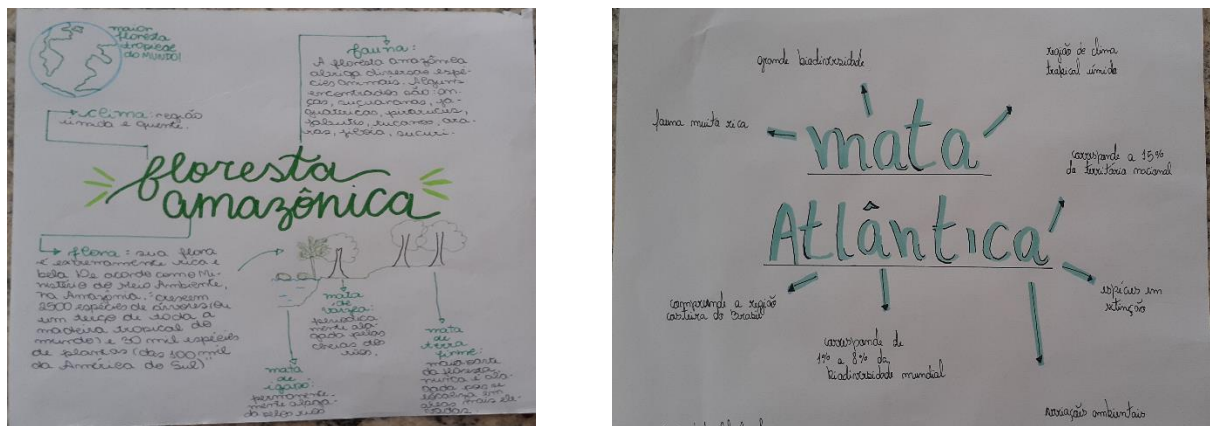 maior
floresta
tropical
do MUNDO!
clima: região
úmida e quente.
fauna:
A floresta amazônica
abriga diversas espé-
cies animais. Alguns
encontrados são: on-
ças, suçuaranas, ja-
guatiricas, pirarucus,
jabutis, tucanos, ara-
ras, jiboia, sucuri.
floresta
amazônica
flora: sua flora
é extremamente rica e
bela! De acordo com o Mi-
nistério do Meio Ambiente,
na Amazonia: "crescem
2500 espécies de árvores (ou
um terço de toda a
madeira tropical do
mundo) e 30 mil espécies
de plantas (das 100 mil
da América do Sul)"
mata
de
igapó:
permanente-
mente alaga-
da pelos rios
mata
de
várzea:
periodica
mente ala-
gada pelas
cheias dos
rios.
mata
de terra
firme:
maior parte
da floresta,
nunca é ala-
gada pois se
localiza em
áreas mais ele-
vadas.
grande biodiversidade
região de clima
tropical úmido
fauna muito rica
mata
corresponde a 15%
do território nacional
Atlântica
compreende a região
costeira do Brasil
espécies em
extinção
corresponde de
1% a 8% da
biodiversidade mundial
variações ambientais